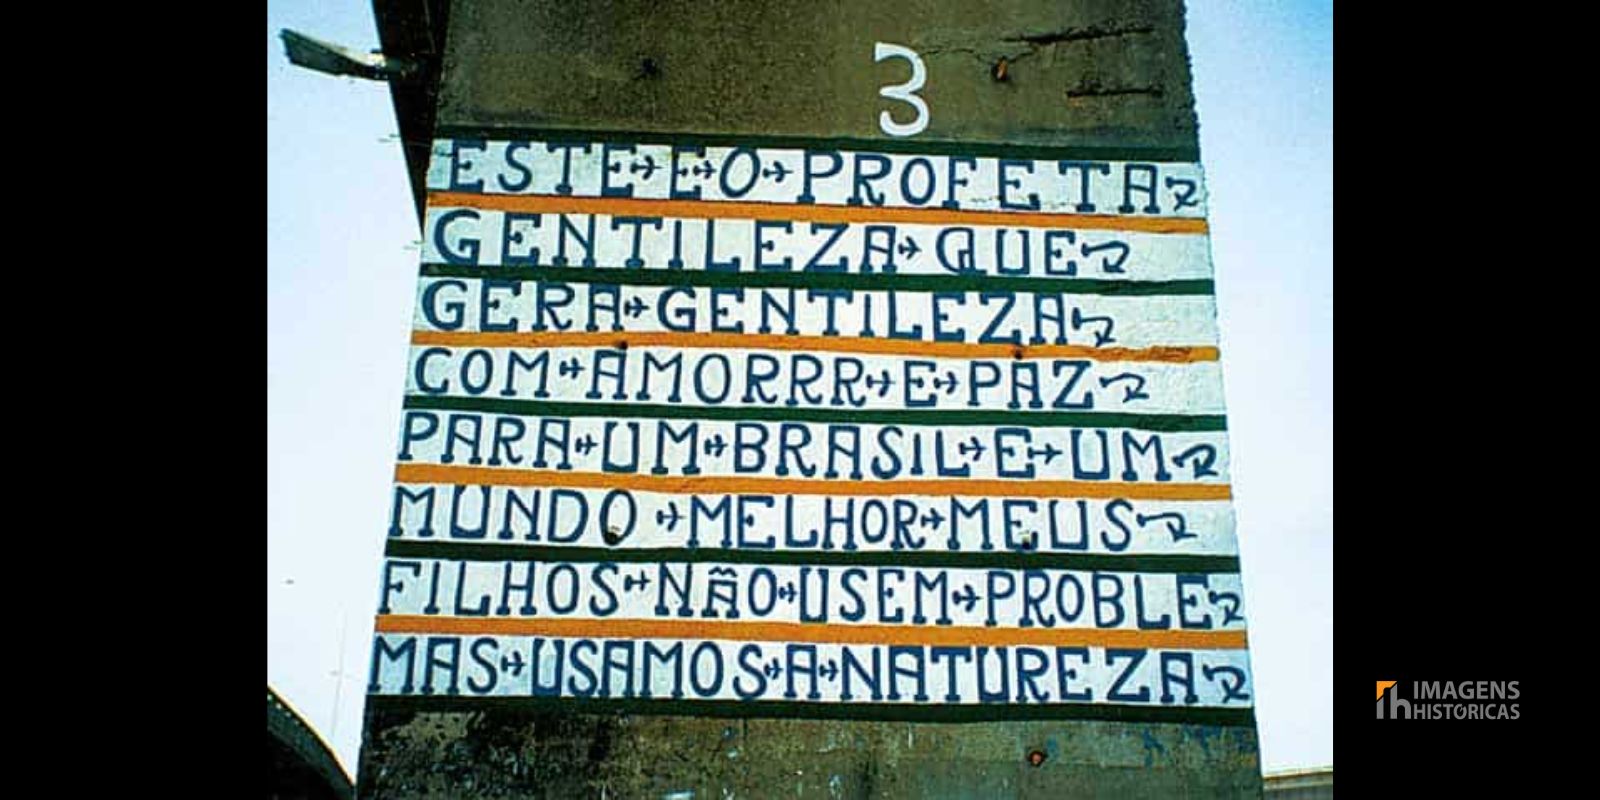 3
ESTE E O PROFETA
GENTILEZA QUE
GERA GENTILEZA
COM AMORRR E PAZ
PARA UM BRASIL E UM
MUNDO MELHOR MEUS
FILHOS NÃO USEM PROBLE
MAS USAMOS A NATUREZA
IMAGENS
HISTÓRICAS